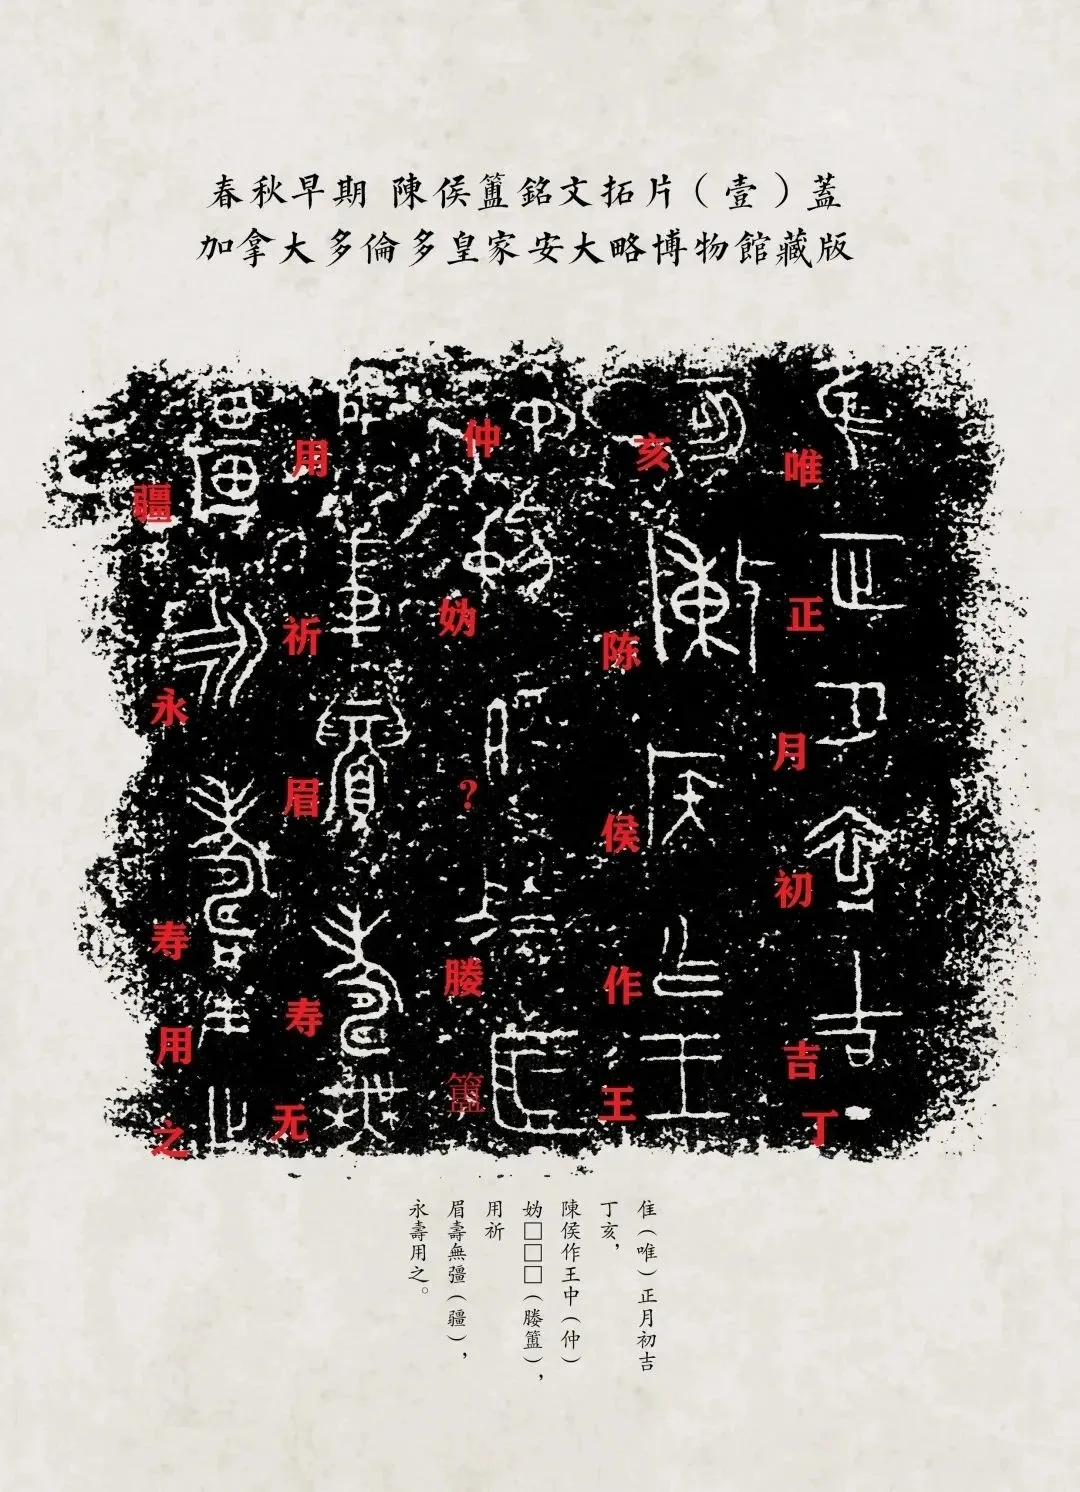 春秋早期 陳侯簠銘文拓片（壹）蓋
加拿大多倫多皇家安大略博物館藏版
唯正月初吉丁
亥陈侯作王
仲妫?媵簠
用祈眉寿无
疆永寿用之
隹（唯）正月初吉
丁亥，
陳侯作王中（仲）
妫□□□（媵簠），
用祈
眉壽無彊（疆），
永壽用之。